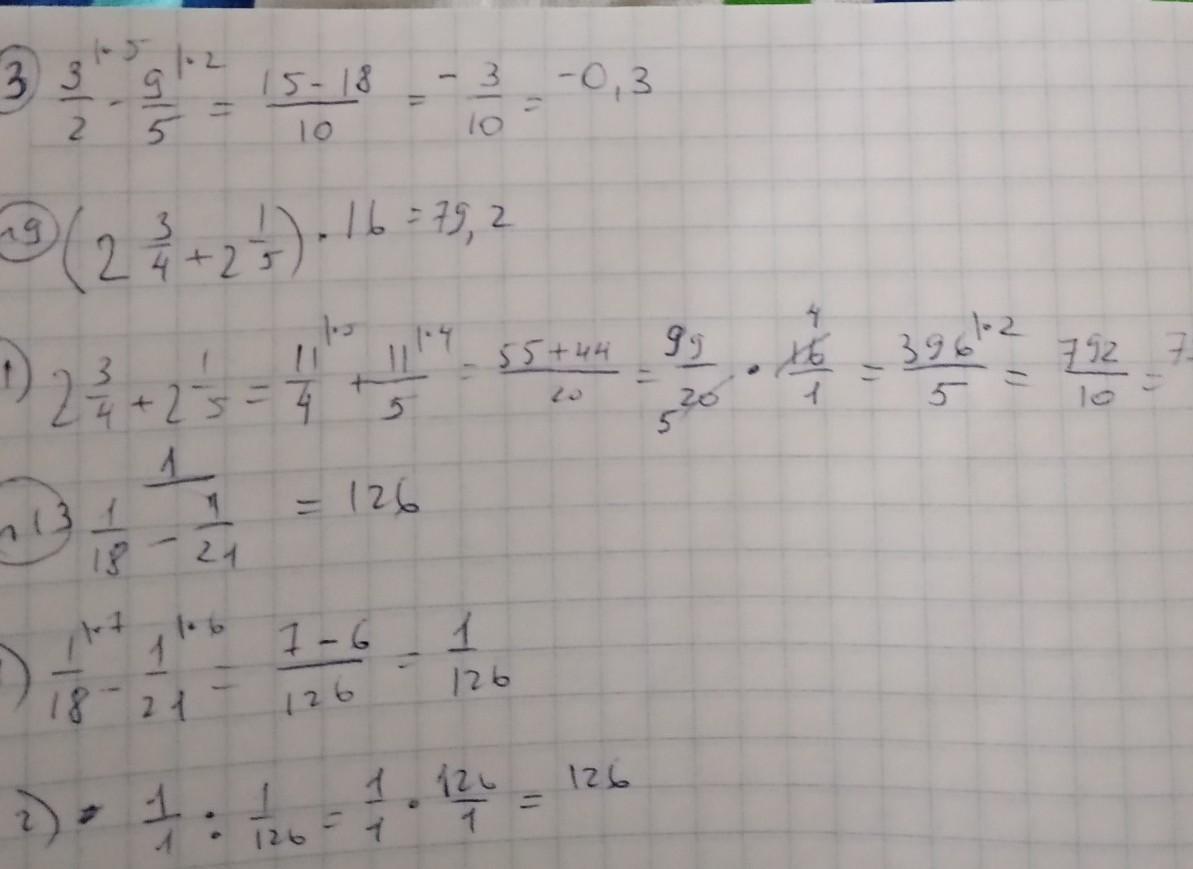 3) 3/2 |·5 - 9/5 |·2 = (15-18)/10 = -3/10 = -0,3
n9) (2 3/4 + 2 1/5) · 16 = 79,2
1) 2 3/4 + 2 1/5 = 11/4 |·5 + 11/5 |·4 = (55+44)/20 = 99/20 5 · 16/1 4 = 396/5 |·2 = 792/10 = 7
n13 1/(1/18 - 1/21) = 126
1) 1/18 |·7 - 1/21 |·6 = (7-6)/126 = 1/126
2) 1/1 : 1/126 = 1/1 · 126/1 = 126